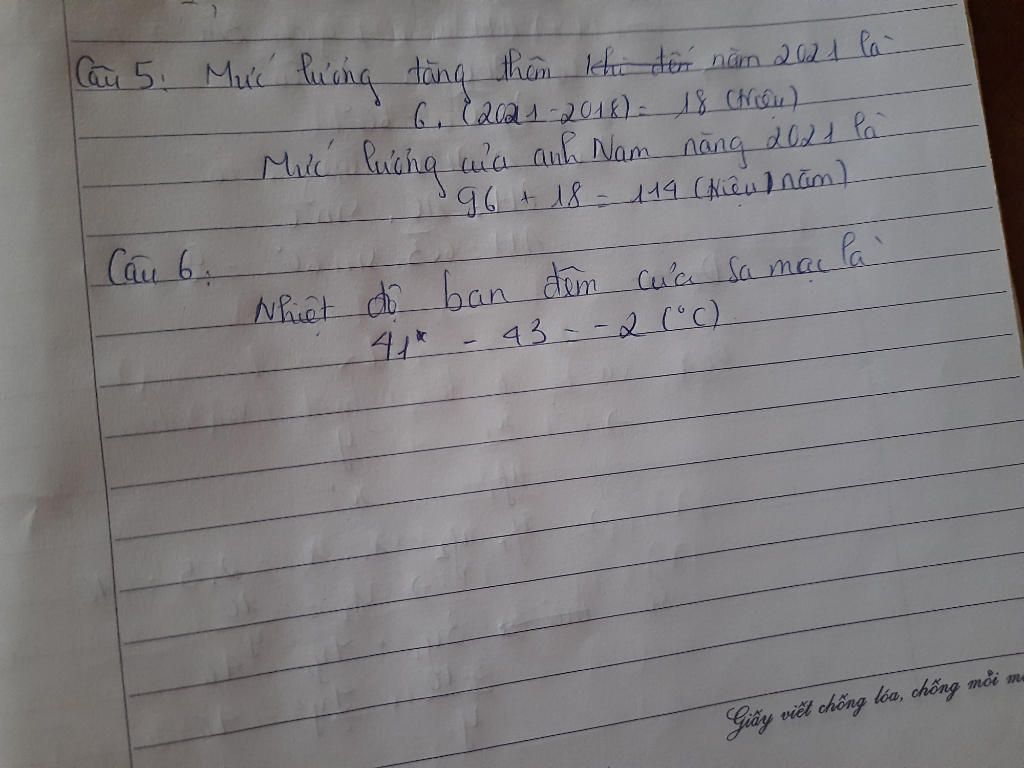 Câu 5: Mức lương tăng thêm khi đến năm 2021 là
6. (2021-2018) = 18 (triệu)
Mức lương của anh Nam năng 2021 là
96 + 18 = 114 (triệu/năm)
Câu 6:
Nhiệt độ ban đêm của sa mạc là
41 - 43 = -2 (°C)
Giấy viết chống lóa, chống mỏi